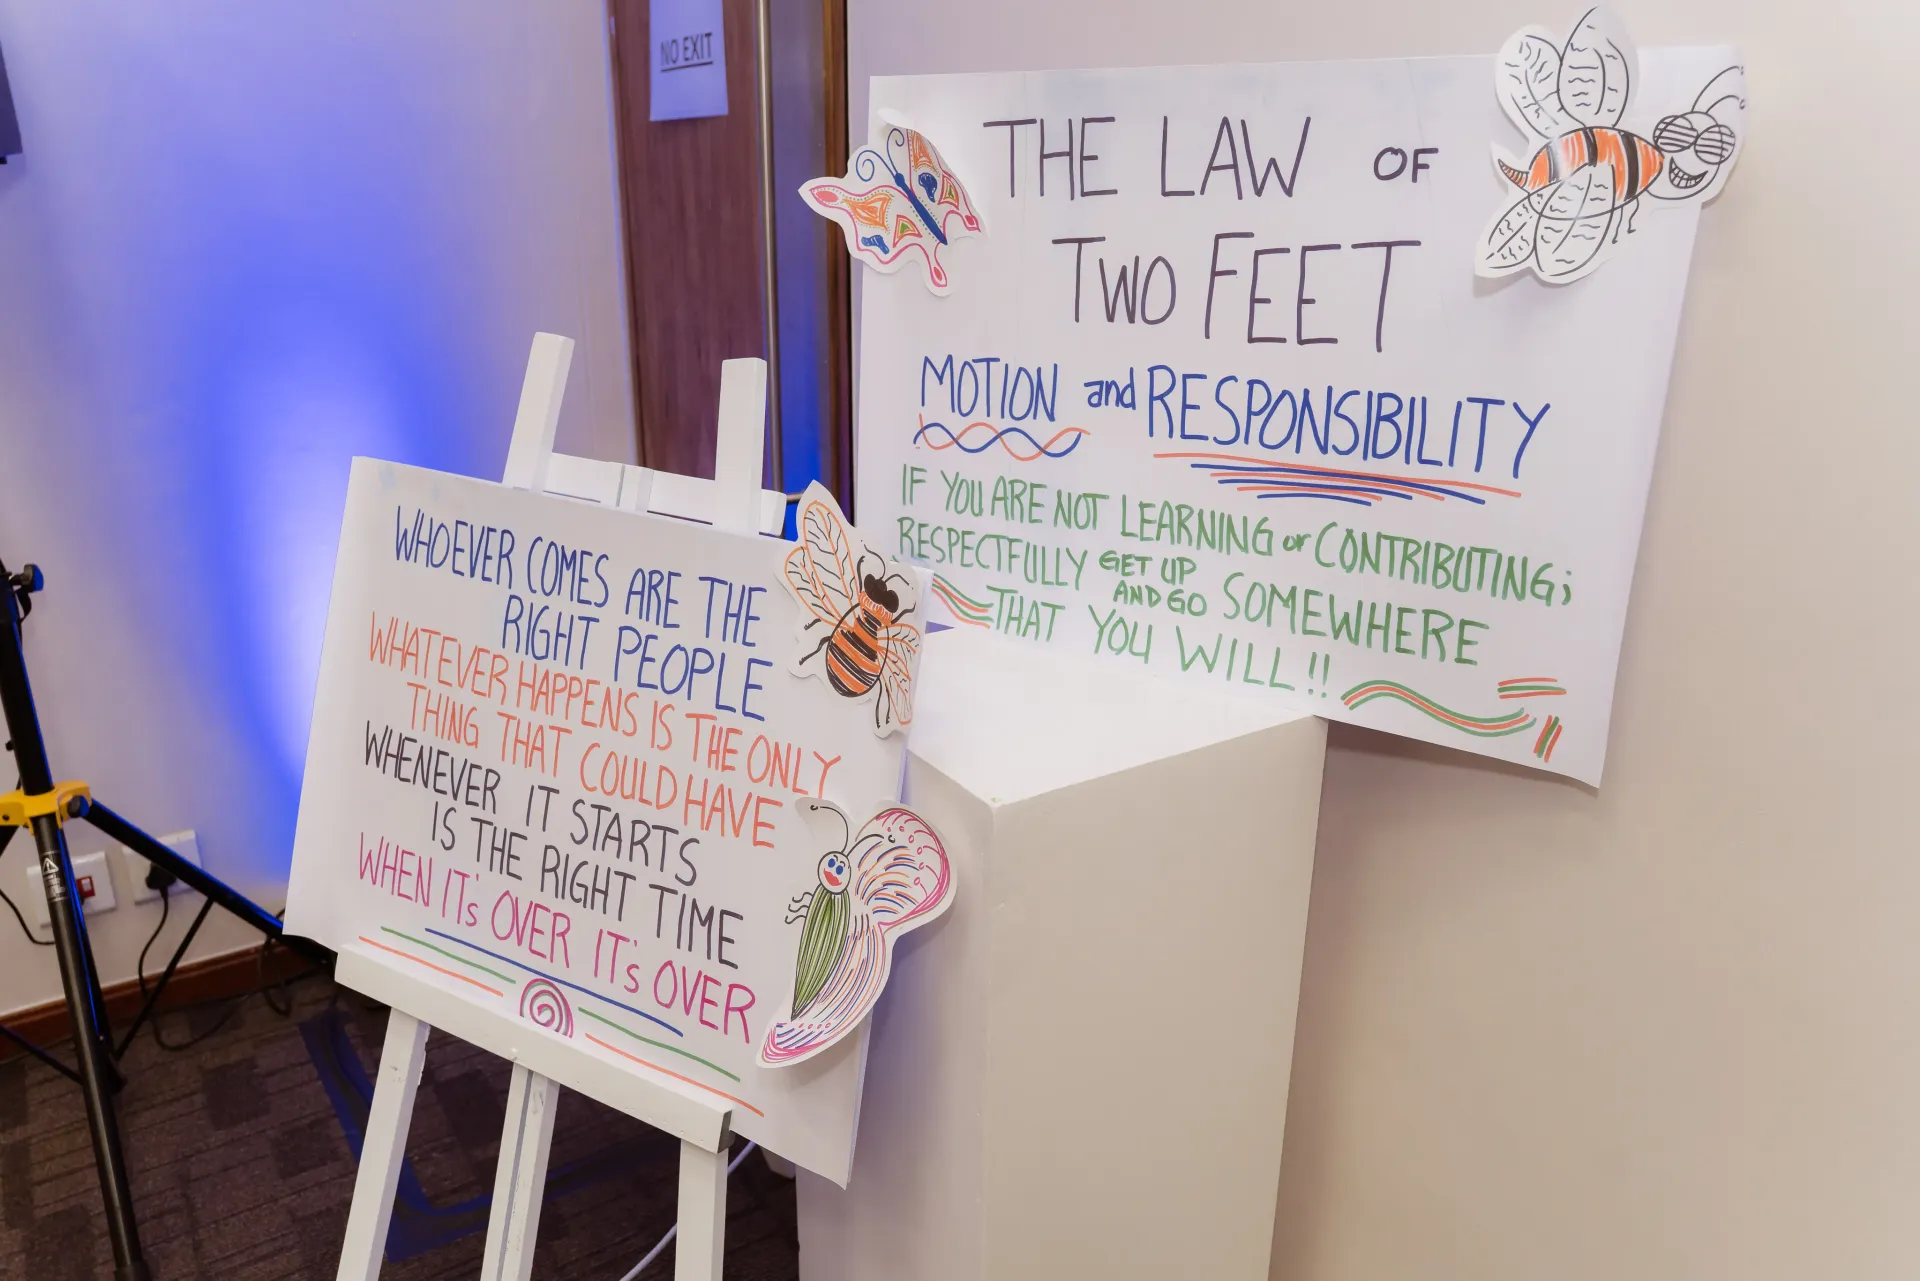 NO EXIT
THE LAW OF
TWO FEET
MOTION and RESPONSIBILITY
IF YOU ARE NOT LEARNING or CONTRIBUTING;
RESPECTFULLY GET UP AND GO SOMEWHERE
THAT YOU WILL!!
WHOEVER COMES ARE THE
RIGHT PEOPLE
WHATEVER HAPPENS IS THE ONLY
THING THAT COULD HAVE
WHENEVER IT STARTS
IS THE RIGHT TIME
WHEN IT's OVER IT's OVER